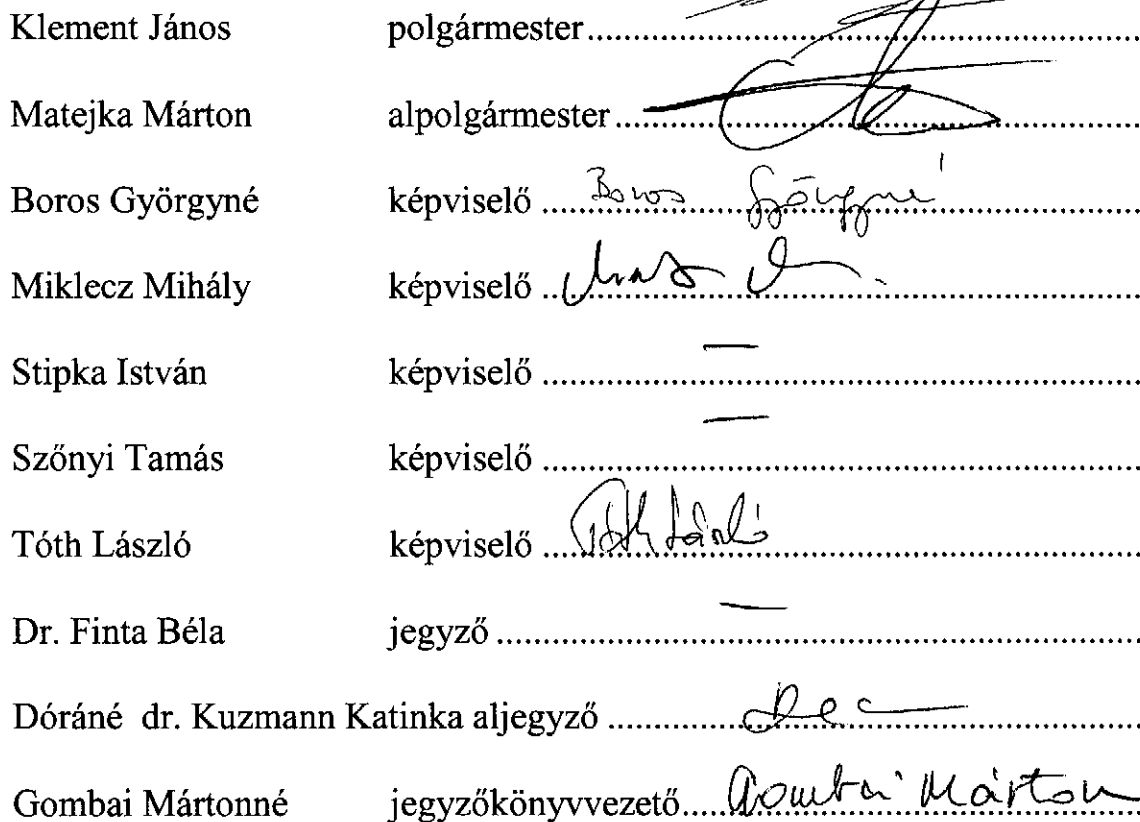 Klement János polgármester..........
Matejka Márton alpolgármester..........
Boros Györgyné képviselő .......... Boros Györgyné
Miklecz Mihály képviselő ..........
Stipka István képviselő .......... —
Szőnyi Tamás képviselő .......... —
Tóth László képviselő .......... Tóth László
Dr. Finta Béla jegyző .......... —
Dóráné dr. Kuzmann Katinka aljegyző ..........
Gombai Mártonné jegyzőkönyvvezető.......... Gombai Márton